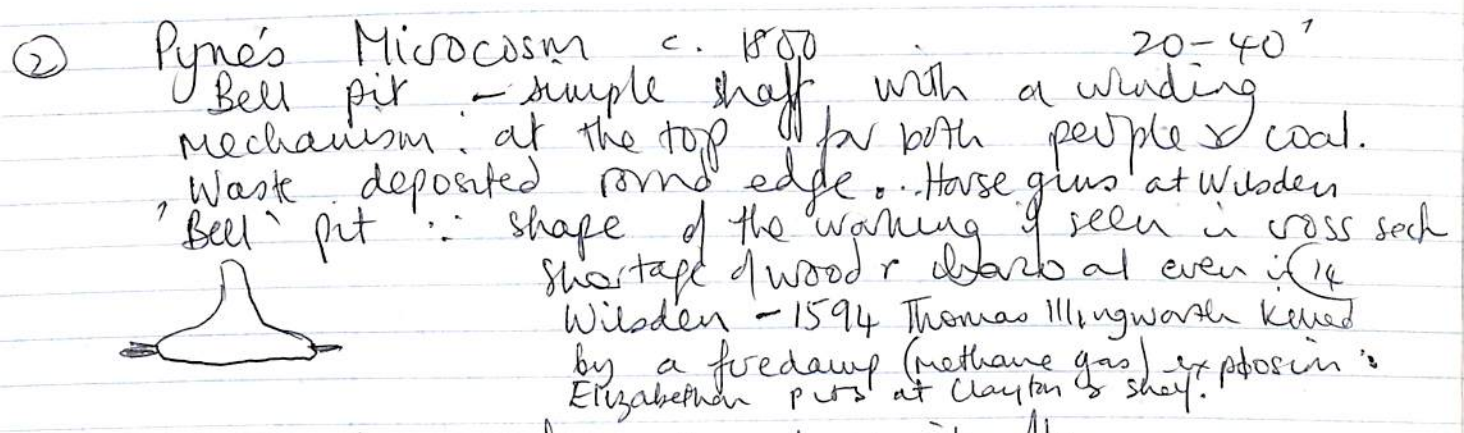 ② Pyne's Microcosm c. 1800 20-40'
Bell pit - simple shaft with a winding
mechanism at the top for both people & coal.
Waste deposited round edge. Horse gins at Wilsden
'Bell' pit ∵ shape of the working if seen in cross sect
shortage of wood & charcoal even in 14
Wilsden - 1594 Thomas Illingworth killed
by a firedamp (methane gas) explosion
Elizabethan pits at Clayton & Shelf.